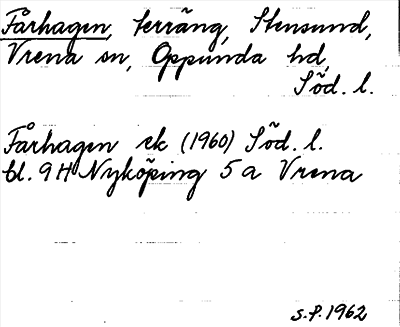 Fårhagen, terräng, Stensund,
Vrena sn, Oppunda hd,
Söd. l.
Fårhagen ek (1960) Söd. l.
bl. 9 H Nyköping 5 a Vrena
S.P. 1962